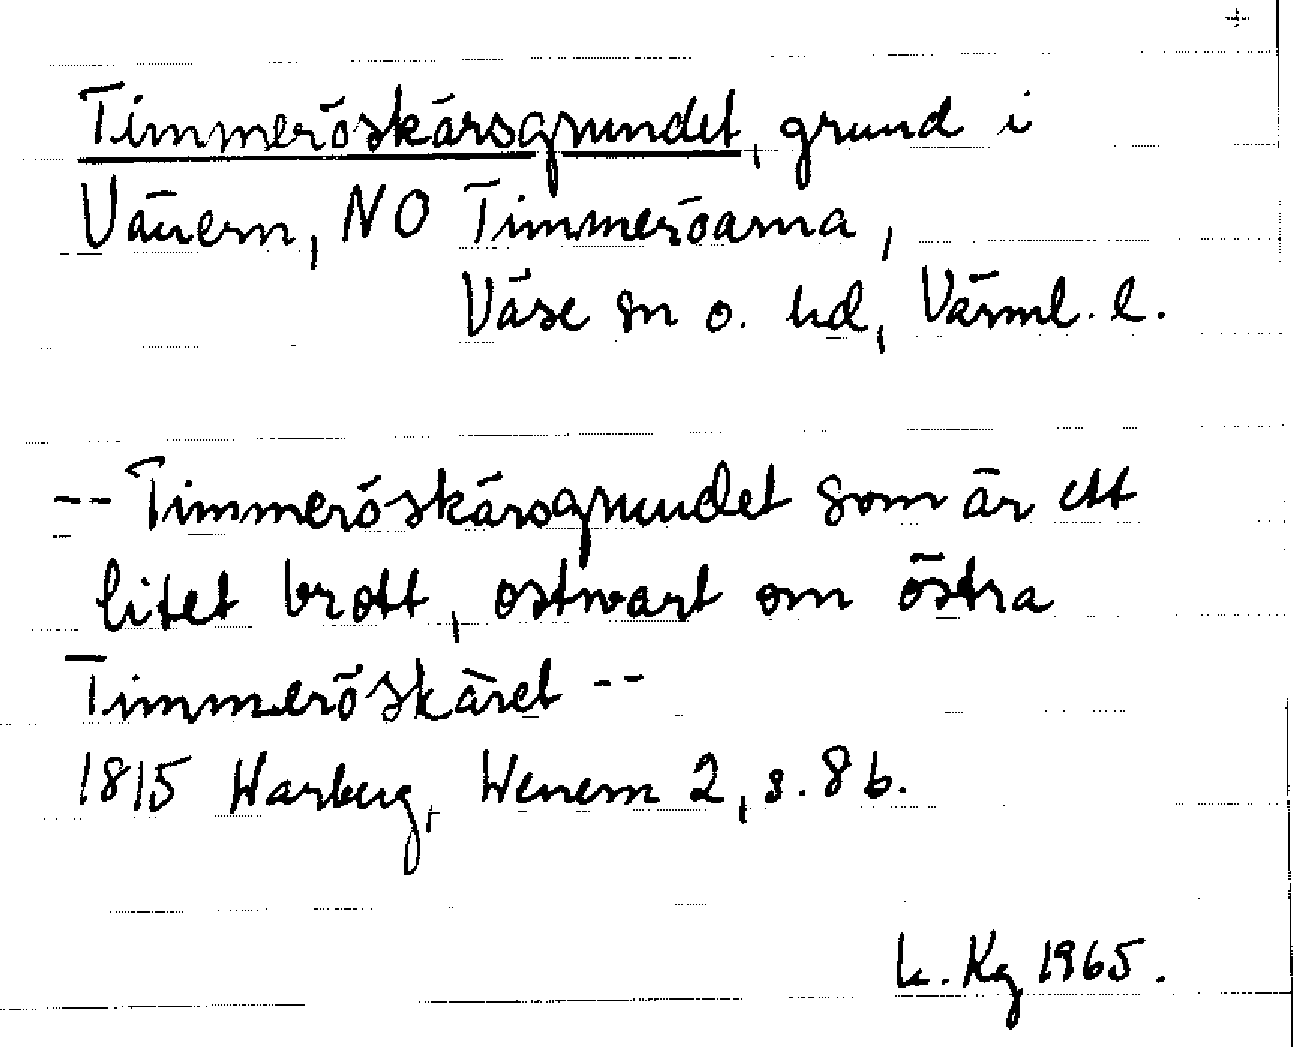 +
Timmeröskärsgrundet, grund i
Vänern, NO Timmeröarna,
Väse sn o. hd, Värml. l.
-- Timmeröskärsgrundet som är ett
litet brott, ostwart om östra
Timmeröskäret --
1815 Warberg, Wenern 2, s. 8 b.
k. Kg 1965.